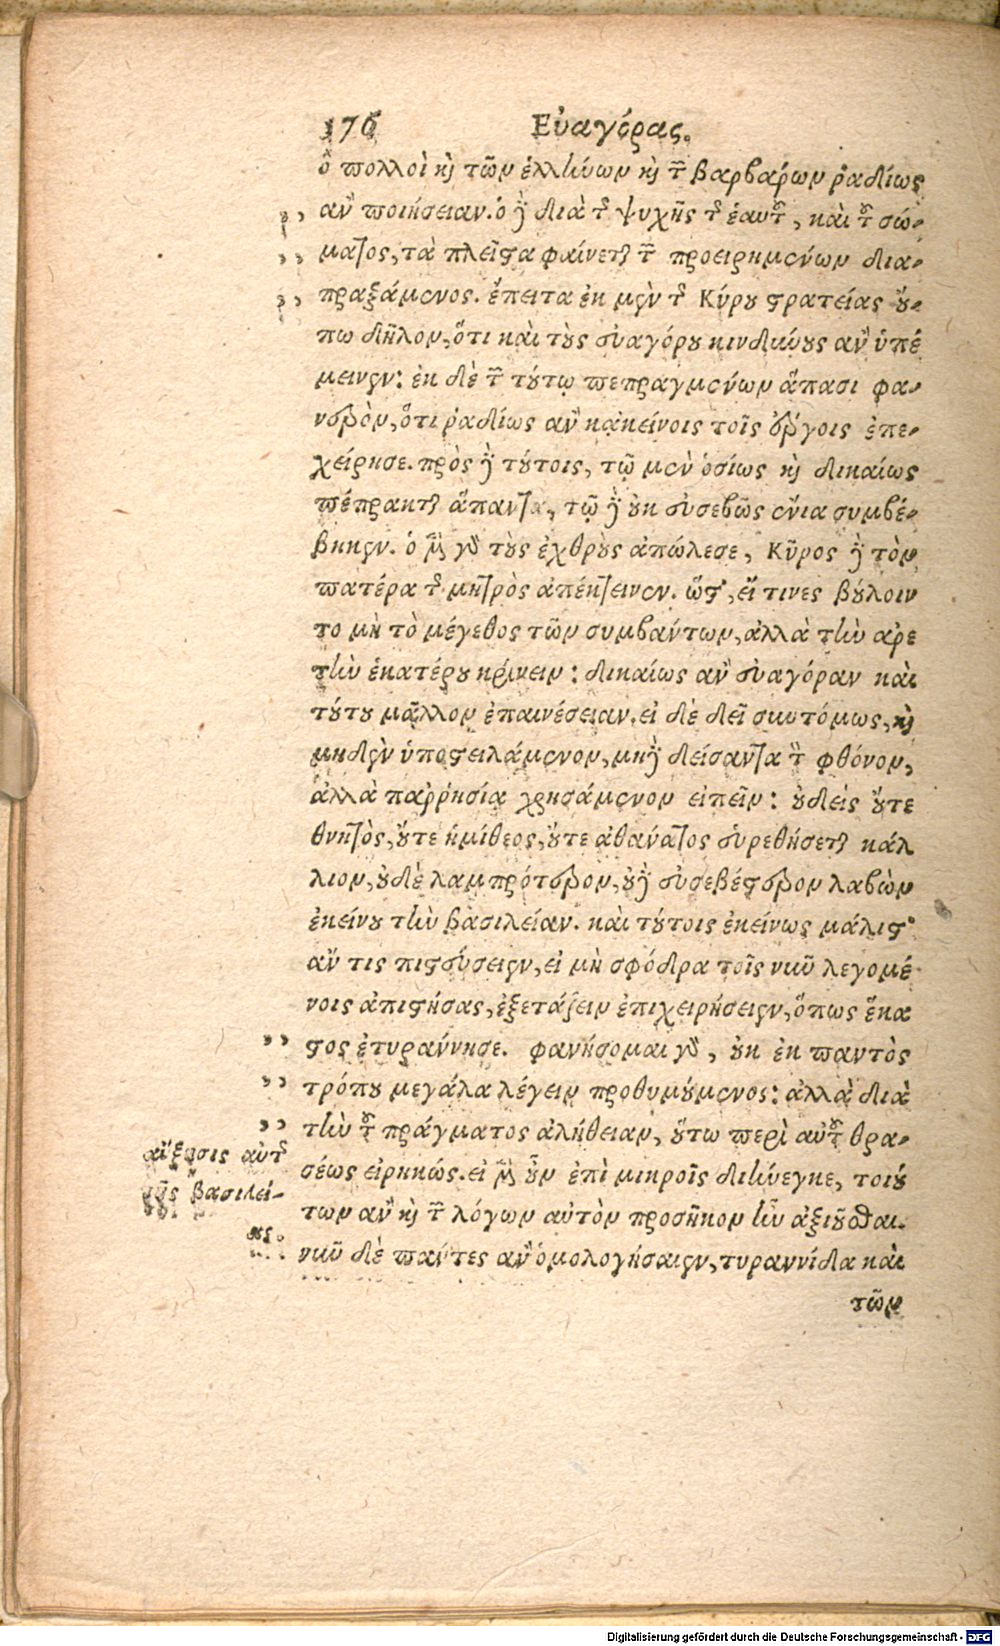 176 Εὐαγόρας.
ὃ πολλοὶ καὶ τῶν ἑλλήνων καὶ τῶν βαρβάρων ῥαδίως
ἂν ποιήσειαν. ὁ δὲ διὰ τῆς ψυχῆς τῆς ἑαυτοῦ, καὶ τοῦ σώ-
ματος, τὰ πλεῖστα φαίνεται τῶν προειρημένων δια-
πραξάμενος. ἔπειτα ἐκ μὲν τῆς Κύρου στρατείας οὔ-
πω δῆλον, ὅτι καὶ τοὺς εὐαγόρου κινδύνους ἂν ὑπέ
μεινεν: ἐκ δὲ τῶν τούτῳ πεπραγμένων ἅπασι φα-
νερὸν, ὅτι ῥαδίως ἂν κἀκείνοις τοῖς ἔργοις ἐπε-
χείρησε. πρὸς δὲ τούτοις, τῷ μὲν ὁσίως καὶ δικαίως
πέπρακται ἅπαντα, τῷ δὲ οὐκ εὐσεβῶς ἔνια συμβέ-
βηκεν. ὁ μὲν γὰρ τοὺς ἐχθροὺς ἀπώλεσε, Κῦρος δὲ τὸν
πατέρα τῆς μητρὸς ἀπέκτεινεν. ὥστ', εἴ τινες βούλοιν
το μὴ τὸ μέγεθος τῶν συμβάντων, ἀλλὰ τὴν ἀρε
τὴν ἑκατέρου κρίνειν: δικαίως ἂν εὐαγόραν καὶ
τούτου μᾶλλον ἐπαινέσειαν. εἰ δὲ δεῖ συντόμως, καὶ
μηδὲν ὑποστειλάμενον, μηδὲ δείσαντα τὸν φθόνον,
ἀλλὰ παῤῥησίᾳ χρησάμενον εἰπεῖν: οὐδεὶς οὔτε
θνητὸς, οὔτε ἡμίθεος, οὔτε ἀθάνατος εὑρεθήσεται κάλ
λιον, οὐδὲ λαμπρότερον, οὐδὲ εὐσεβέστερον λαβὼν
ἐκείνου τὴν βασιλείαν. καὶ τούτοις ἐκείνως μάλιστ'
ἄν τις πιστεύσειεν, εἰ μὴ σφόδρα τοῖς νῦν λεγομέ
νοις ἀπιστήσας, ἐξετάζειν ἐπιχειρήσειεν, ὅπως ἕκα
στος ἐτυράννησε. φανήσομαι γὰρ, οὐκ ἐκ παντὸς
τρόπου μεγάλα λέγειν προθυμούμενος: ἀλλὰ διὰ
τὴν τοῦ πράγματος ἀλήθειαν, οὕτω περὶ αὐτοῦ θρα-
σέως εἰρηκώς. εἰ μὲν οὖν ἐπὶ μικροῖς διήνεγκε, τοιού
των ἂν καὶ τῶν λόγων αὐτὸν προσῆκον ἦν ἀξιοῦσθαι.
νῦν δὲ πάντες ἂν ὁμολογήσαιεν, τυραννίδα καὶ
τῶν
αὔξησις αὐτῆς
τῆς βασιλεί-
ας.
Digitalisierung gefördert durch die Deutsche Forschungsgemeinschaft - DFG